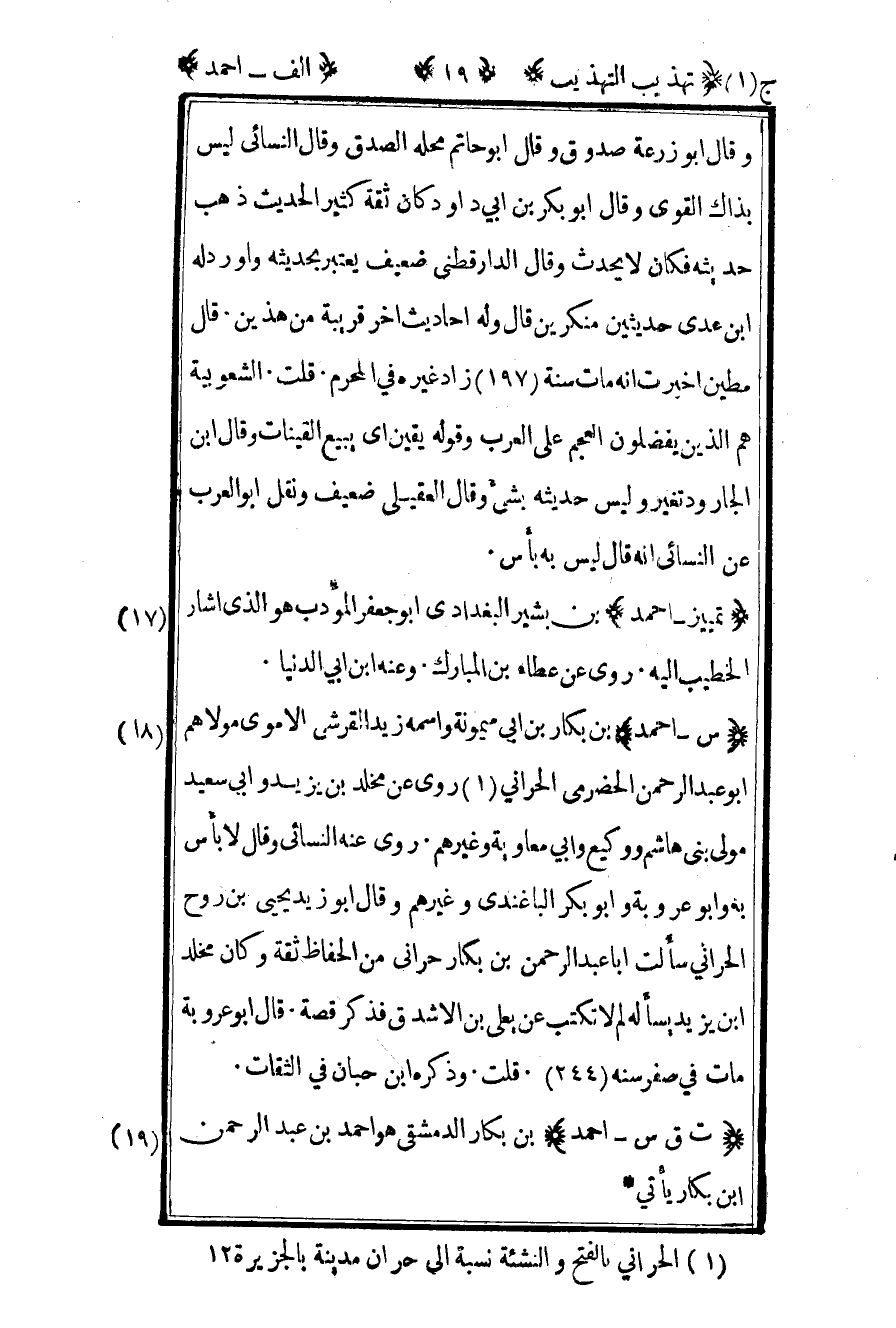 ج(١) ﴿ تهذيب التهذيب ﴾ ﴿ ١٩ ﴾ ﴿ الف ـ احمد ﴾
و قال ابو زرعة صدوق و قال ابوحاتم محله الصدق وقال النسائى ليس
بذاك القوى و قال ابو بكر بن ابي داود كان ثقة كثير الحديث ذهب
حديثه فكان لايحدث وقال الدارقطنى ضعيف يعتبر بحديثه واورد له
ابن عدى حديثين منكرين قال وله احاديث اخر قريبة من هذين · قال
مطين اخبرت انه مات سنة (١٩٧) زاد غيره في المحرم · قلت · الشعوبية
هم الذين يفضلون العجم على العرب وقوله يقين اى يبيع القينات وقال ابن
الجارود تغير و ليس حديثه بشئ وقال العقيلى ضعيف ونقل ابوالعرب
عن النسائى انه قال ليس به بأس ·
﴿ تمييز ـ احمد ﴾ بن بشير البغدادى ابوجعفر المؤدب هو الذى اشار (١٧)
الخطيب اليه · روى عن عطاء بن المبارك · وعنه ابن ابي الدنيا ·
﴿ س ـ احمد ﴾ بن بكار بن ابي ميمونة واسمه زيد القرشى الاموى مولاهم (١٨)
ابو عبدالرحمن الحضرمى الحراني (١) روى عن مخلد بن يزيد و ابي سعيد
مولى بنى هاشم و وكيع وابي معاوية وغيرهم · روى عنه النسائى وقال لا بأس
به وابو عروبة و ابو بكر الباغندى و غيرهم و قال ابو زيد يحيى بن روح
الحراني سألت اباعبدالرحمن بن بكار حرانى من الحفاظ ثقة و كان مخلد
ابن يزيد يسأله لم لا تكتب عن يعلى بن الاشدق فذكر قصة · قال ابوعروبة
مات في صفر سنه (٢٤٤) · قلت · وذكره ابن حبان في الثقات ·
﴿ ت ق س ـ احمد ﴾ بن بكار الدمشقى هو احمد بن عبد الرحمن (١٩)
ابن بكار يأتي *
(١) الحراني بالفتح و النشئة نسبة الى حران مدينة بالجزيرة ١٢